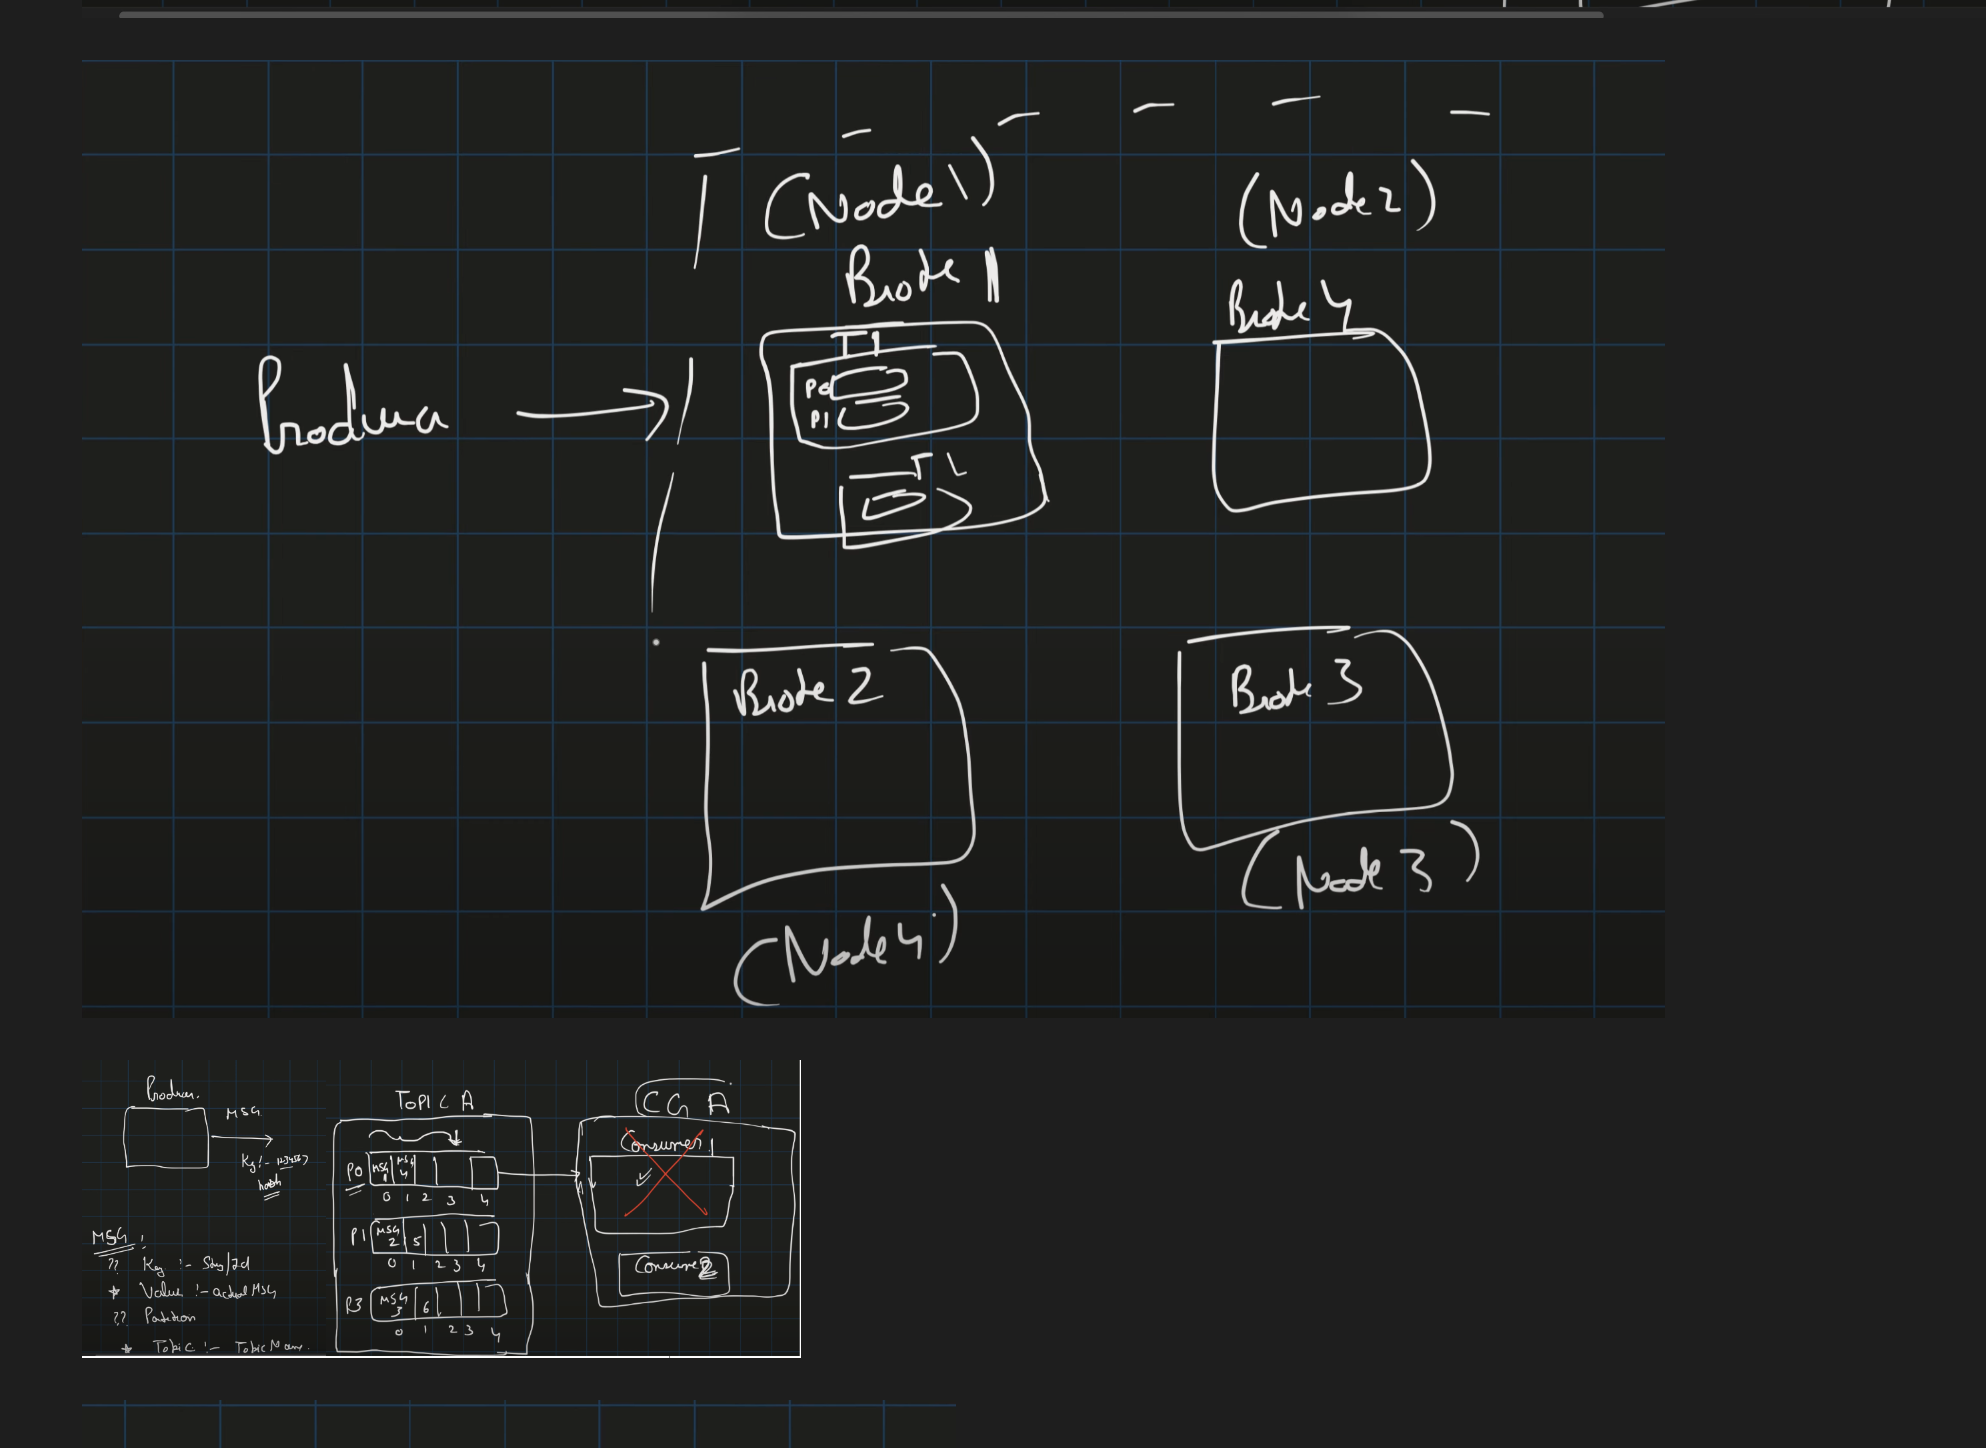 (Node 1)
(Node 2)
Broke 1
Broke 4
T1
P0
P1
Producer
Broke 2
Broke 3
(Node 3)
(Node 4)
Producer
MSG
Key :-
hash
MSG :
?? Key :-
* Value :- actual MSG
?? Partition
* Topic :- Topic Name
TOPIC A
P0 MSG 1 MSG 4
0 1 2 3 4
P1 MSG 2 5
0 1 2 3 4
P3 MSG 3 6
0 1 2 3 4
CG A
Consumer 1
Consumer 2